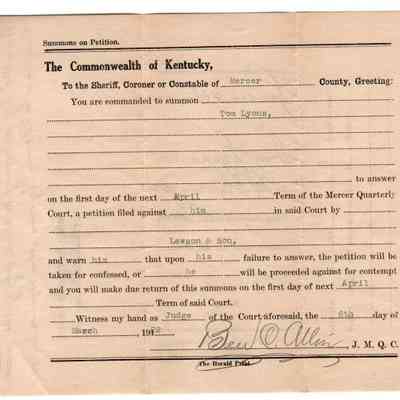 Summons on Petition.
The Commonwealth of Kentucky,
To the Sheriff, Coroner or Constable of Mercer County, Greeting:
You are commanded to summon
Tom Lyons,
to answer
on the first day of the next April Term of the Mercer Quarterly
Court, a petition filed against him in said Court by
Lawson & Son,
and warn him that upon his failure to answer, the petition will be
taken for confessed, or he will be proceeded against for contempt
and you will make due return of this summons on the first day of next April
Term of said Court.
Witness my hand as Judge of the Court aforesaid, the 6th day of
March 19
Ben O. Allin J. M. Q. C.
The Herald Print